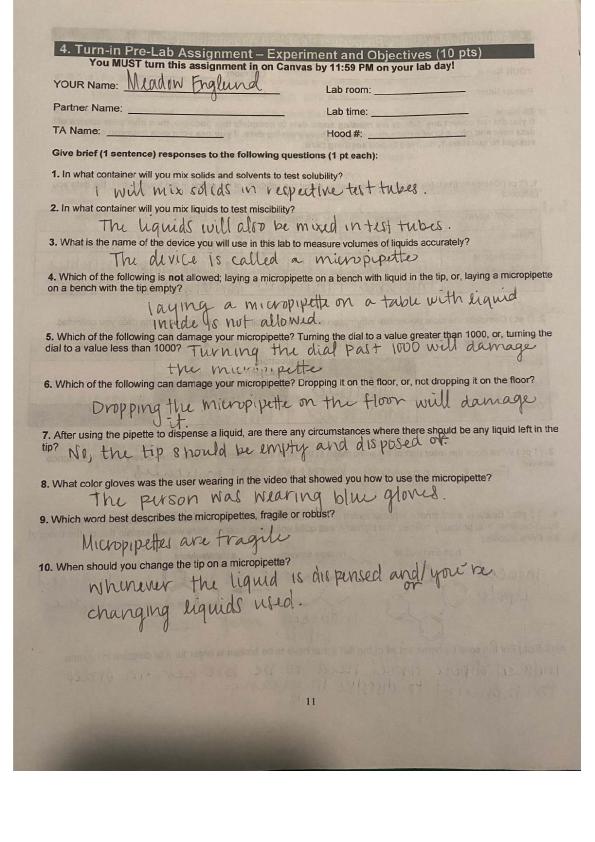 4. Turn-in Pre-Lab Assignment – Experiment and Objectives (10 pts)
You MUST turn this assignment in on Canvas by 11:59 PM on your lab day!
YOUR Name: Meadow Englund
Lab room:
Partner Name:
Lab time:
TA Name:
Hood #:
Give brief (1 sentence) responses to the following questions (1 pt each):
1. In what container will you mix solids and solvents to test solubility?
I will mix solids in respective test tubes.
2. In what container will you mix liquids to test miscibility?
The liquids will also be mixed in test tubes.
3. What is the name of the device you will use in this lab to measure volumes of liquids accurately?
The device is called a micropipette
4. Which of the following is not allowed; laying a micropipette on a bench with liquid in the tip, or, laying a micropipette
on a bench with the tip empty?
laying a micropipette on a table with liquid
inside is not allowed.
5. Which of the following can damage your micropipette? Turning the dial to a value greater than 1000, or, turning the
dial to a value less than 1000? Turning the dial past 1000 will damage
the micropipette
6. Which of the following can damage your micropipette? Dropping it on the floor, or, not dropping it on the floor?
Dropping the micropipette on the floor will damage
it.
7. After using the pipette to dispense a liquid, are there any circumstances where there should be any liquid left in the
tip? No, the tip should be empty and disposed of.
8. What color gloves was the user wearing in the video that showed you how to use the micropipette?
The person was wearing blue gloves.
9. Which word best describes the micropipettes, fragile or robust?
Micropipettes are fragile
10. When should you change the tip on a micropipette?
whenever the liquid is dispensed and/or you're
changing liquids used.
11